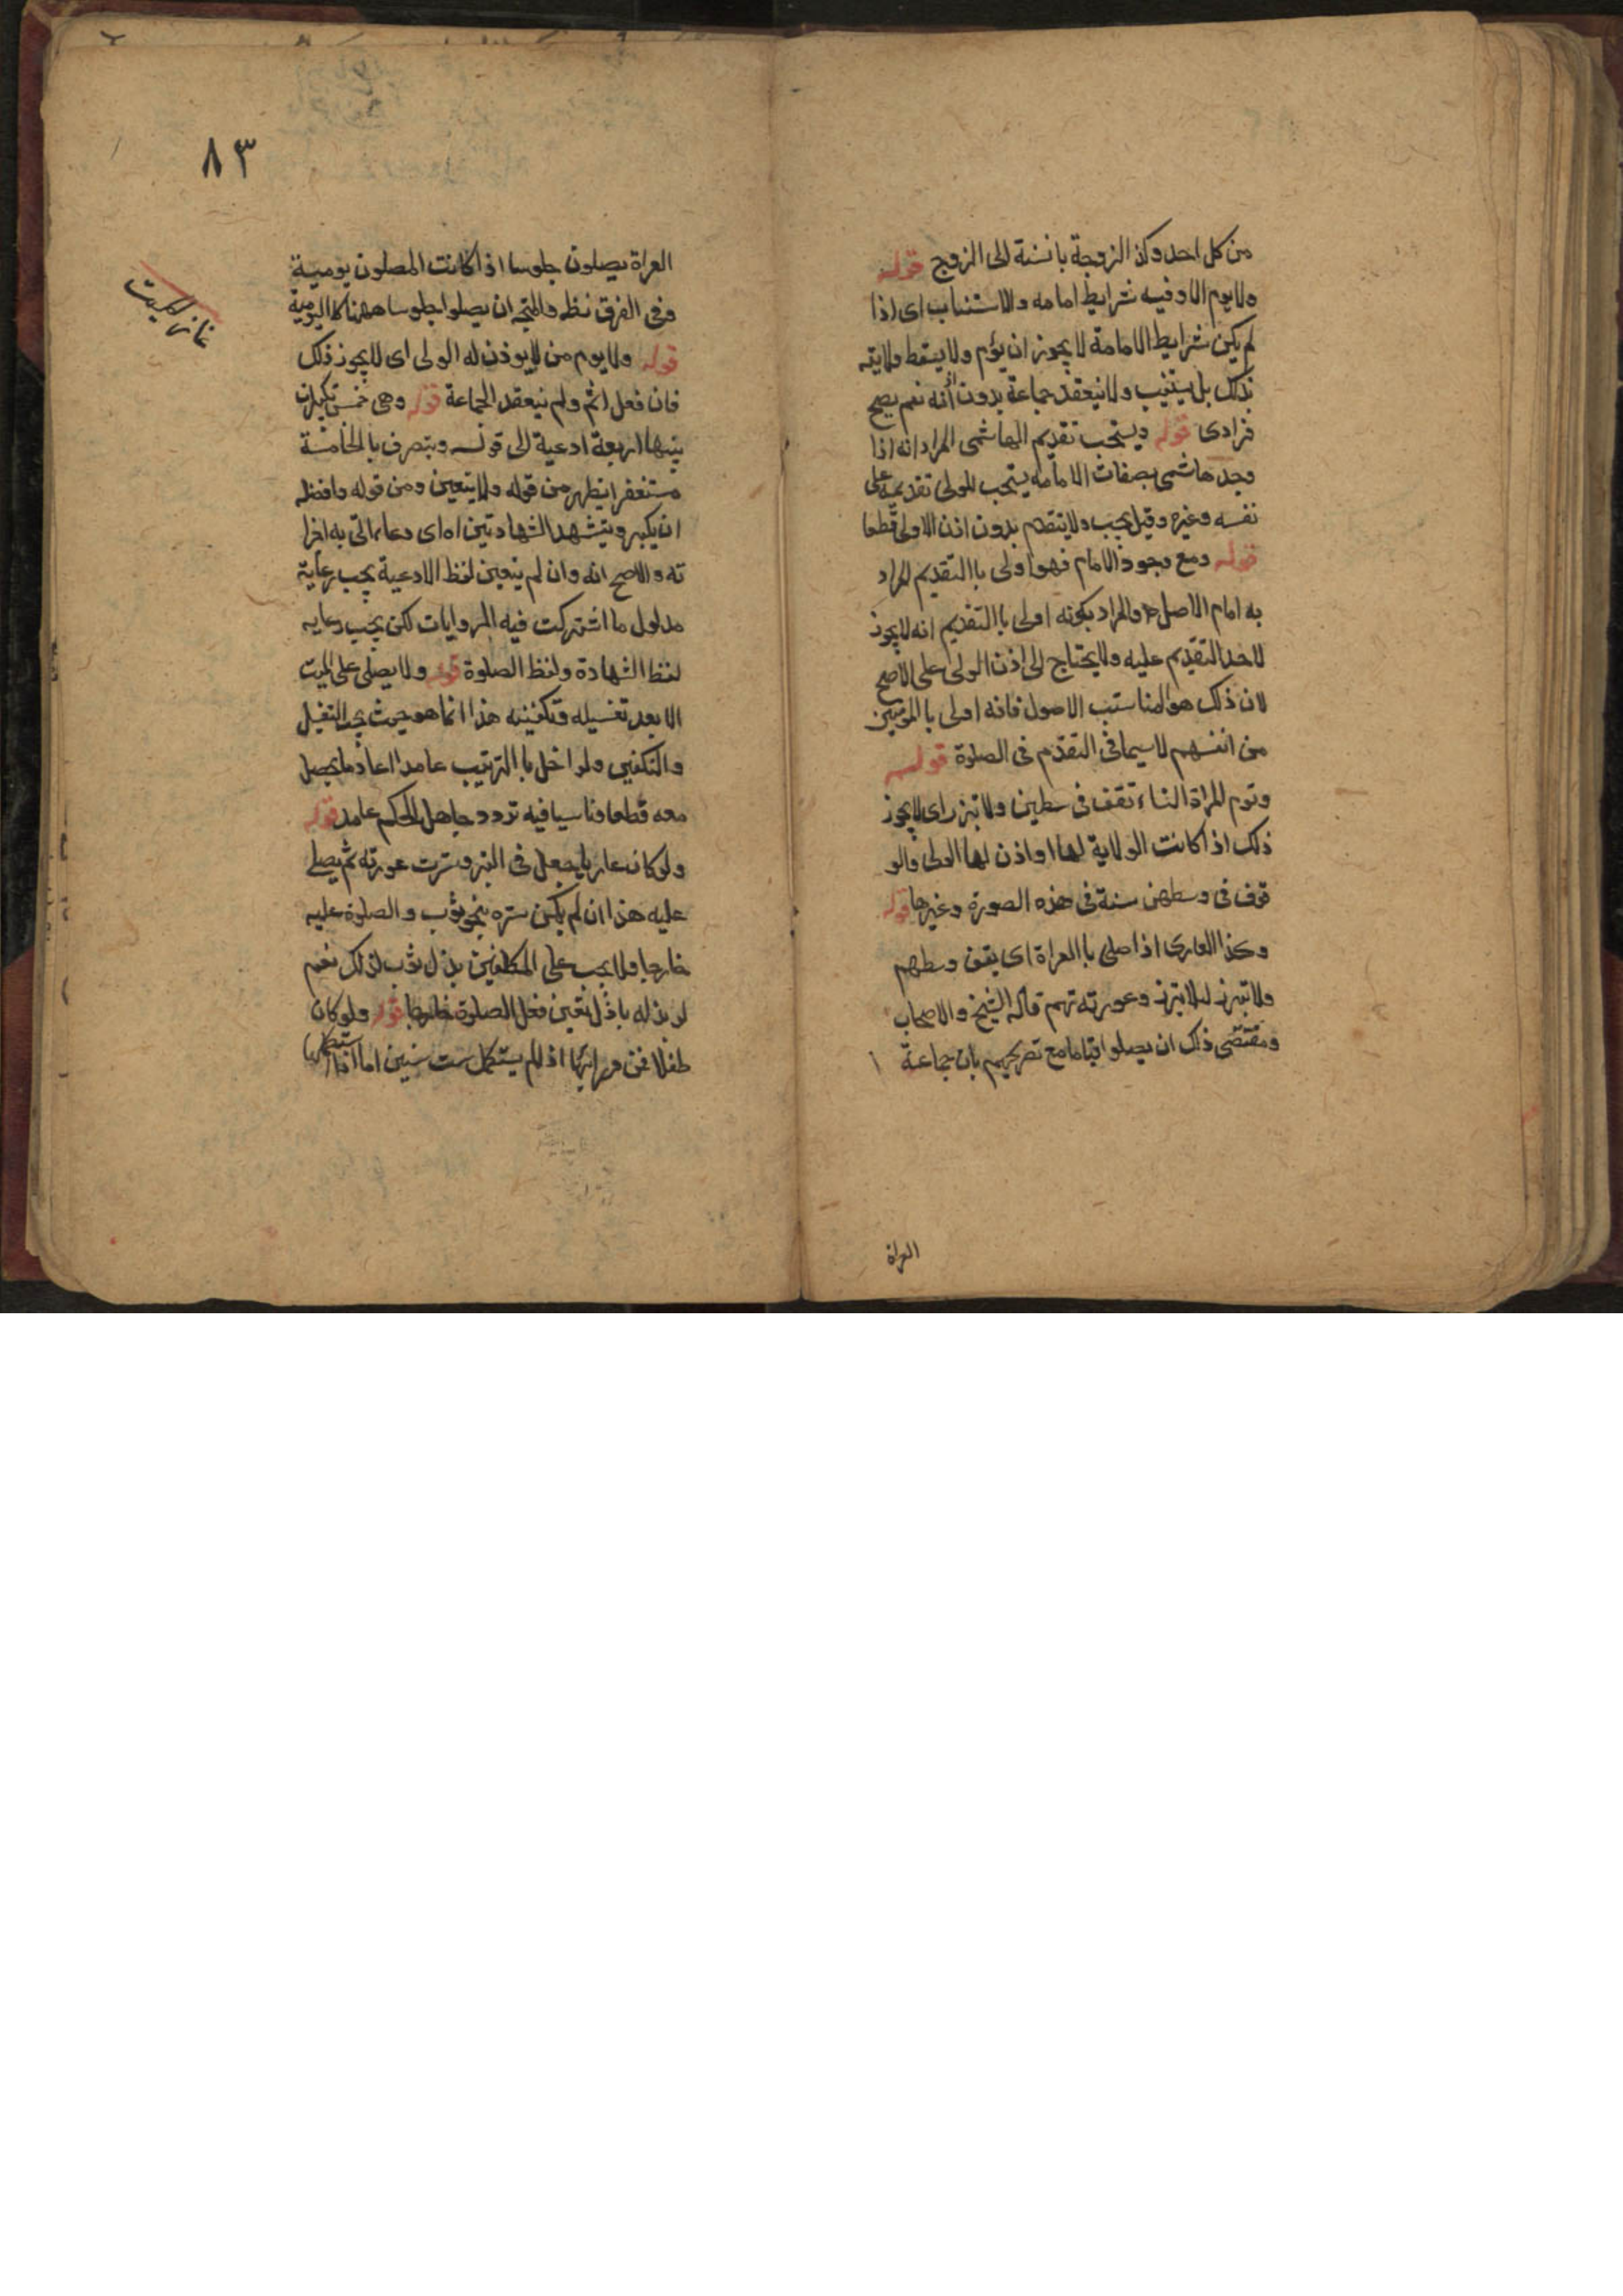 من كل احد وكذا الزوجة بانسنة الى الزوج قوله
ولا يوم الا وفيه شرايط امامه والا استناب اى اذا
لم يكن شرايط الامامة لا يجوز ان يؤم ولا يسقط ولايته
بذلك بل يستنيب ولا ينعقد جماعة بدون اذنه نعم يصح
فرادى قوله ويستحب تقديم الهاشمى المراد انه اذا
وجد هاشمى بصفات الامامه يستحب للولى تقديمه على
نفسه وغيره وقيل يجب ولا يتقدم بدون اذن الاولى قطعا
قوله ومع وجوذ الامام فهو اولى باالتقديم المراد
به امام الاصل والمراد بكونه اولى باالتقديم انه لا يجوز
لاحد التقديم عليه ولا يحتاج الى اذن الولى على الاصح
لان ذلك هو المناسب الاصول فانه اولى باالمومنين
من انفسهم لاسيما فى التقدم فى الصلوة قوله
وتوم للمراة النساء تقف فى سطين ولا تبرز اى لا يجوز
ذلك اذا كانت الولاية لها او اذن لها الولى والو
قوف فى وسطهن سنة فى هذه الصورة وغيرها قوله
وكذا العارى اذا صلى باالعراة اى يقف وسطهم
ولا تبرز لئلا تبرز وعورته تهم قاله الشيخ والاصحاب
ومقتضى ذلك ان يصلوا قياما مع تصريحهم بان جماعة
العراة
٨٣
العراة يصلون جلوسا اذا كانت المصلون يومية
وفى الفرق نظر والمتجه ان يصلوا جلوسا ههنا كاليومية
نماز ميت
قوله ولا يوم من لا يوذن له الولى اى لا يجوز ذلك
فان فعل اثم ولم ينعقد الجماعة قوله وهى خمس تكبيرات
بينها اربعة ادعية الى قوله ويتصرف باالخامسة
مستغفرا يظهر من قوله ولا يتعين ومن قوله وافضله
ان يكبر ويتشهد الشهادتين اه اى دعا بما اتى به اخرا
ته والاصح انه وان لم يتعين لفظ الادعية يجب رعاية
مدلول ما اشتركت فيه الروايات لكن يجب رعايه
لفظ الشهادة ولفظ الصلوة قوله ولا يصلى على الميت
الا بعد تغسيله وتكفينه هذا انما هو حيث يجب التغسيل
والتكفين ولو اخل باالترتيب عامدا اعاد ما يحصل
معه قطعا وناسيا فيه تردد جاهل الحكم عامد قوله
ولو كان عاريا جعل فى القبر وسترت عورته ثم يصلى
عليه هذا ان لم يكن ستره بنحو ثوب والصلوة عليه
خارجا ولا يجب على المكلفين بذل ثوب لذلك نعم
لو بذله باذل تعين فعل الصلوة خارجا قوله ولو كان
طفلا فمن ورائها اذا لم يستكمل ست سنين اما اذا استكملها